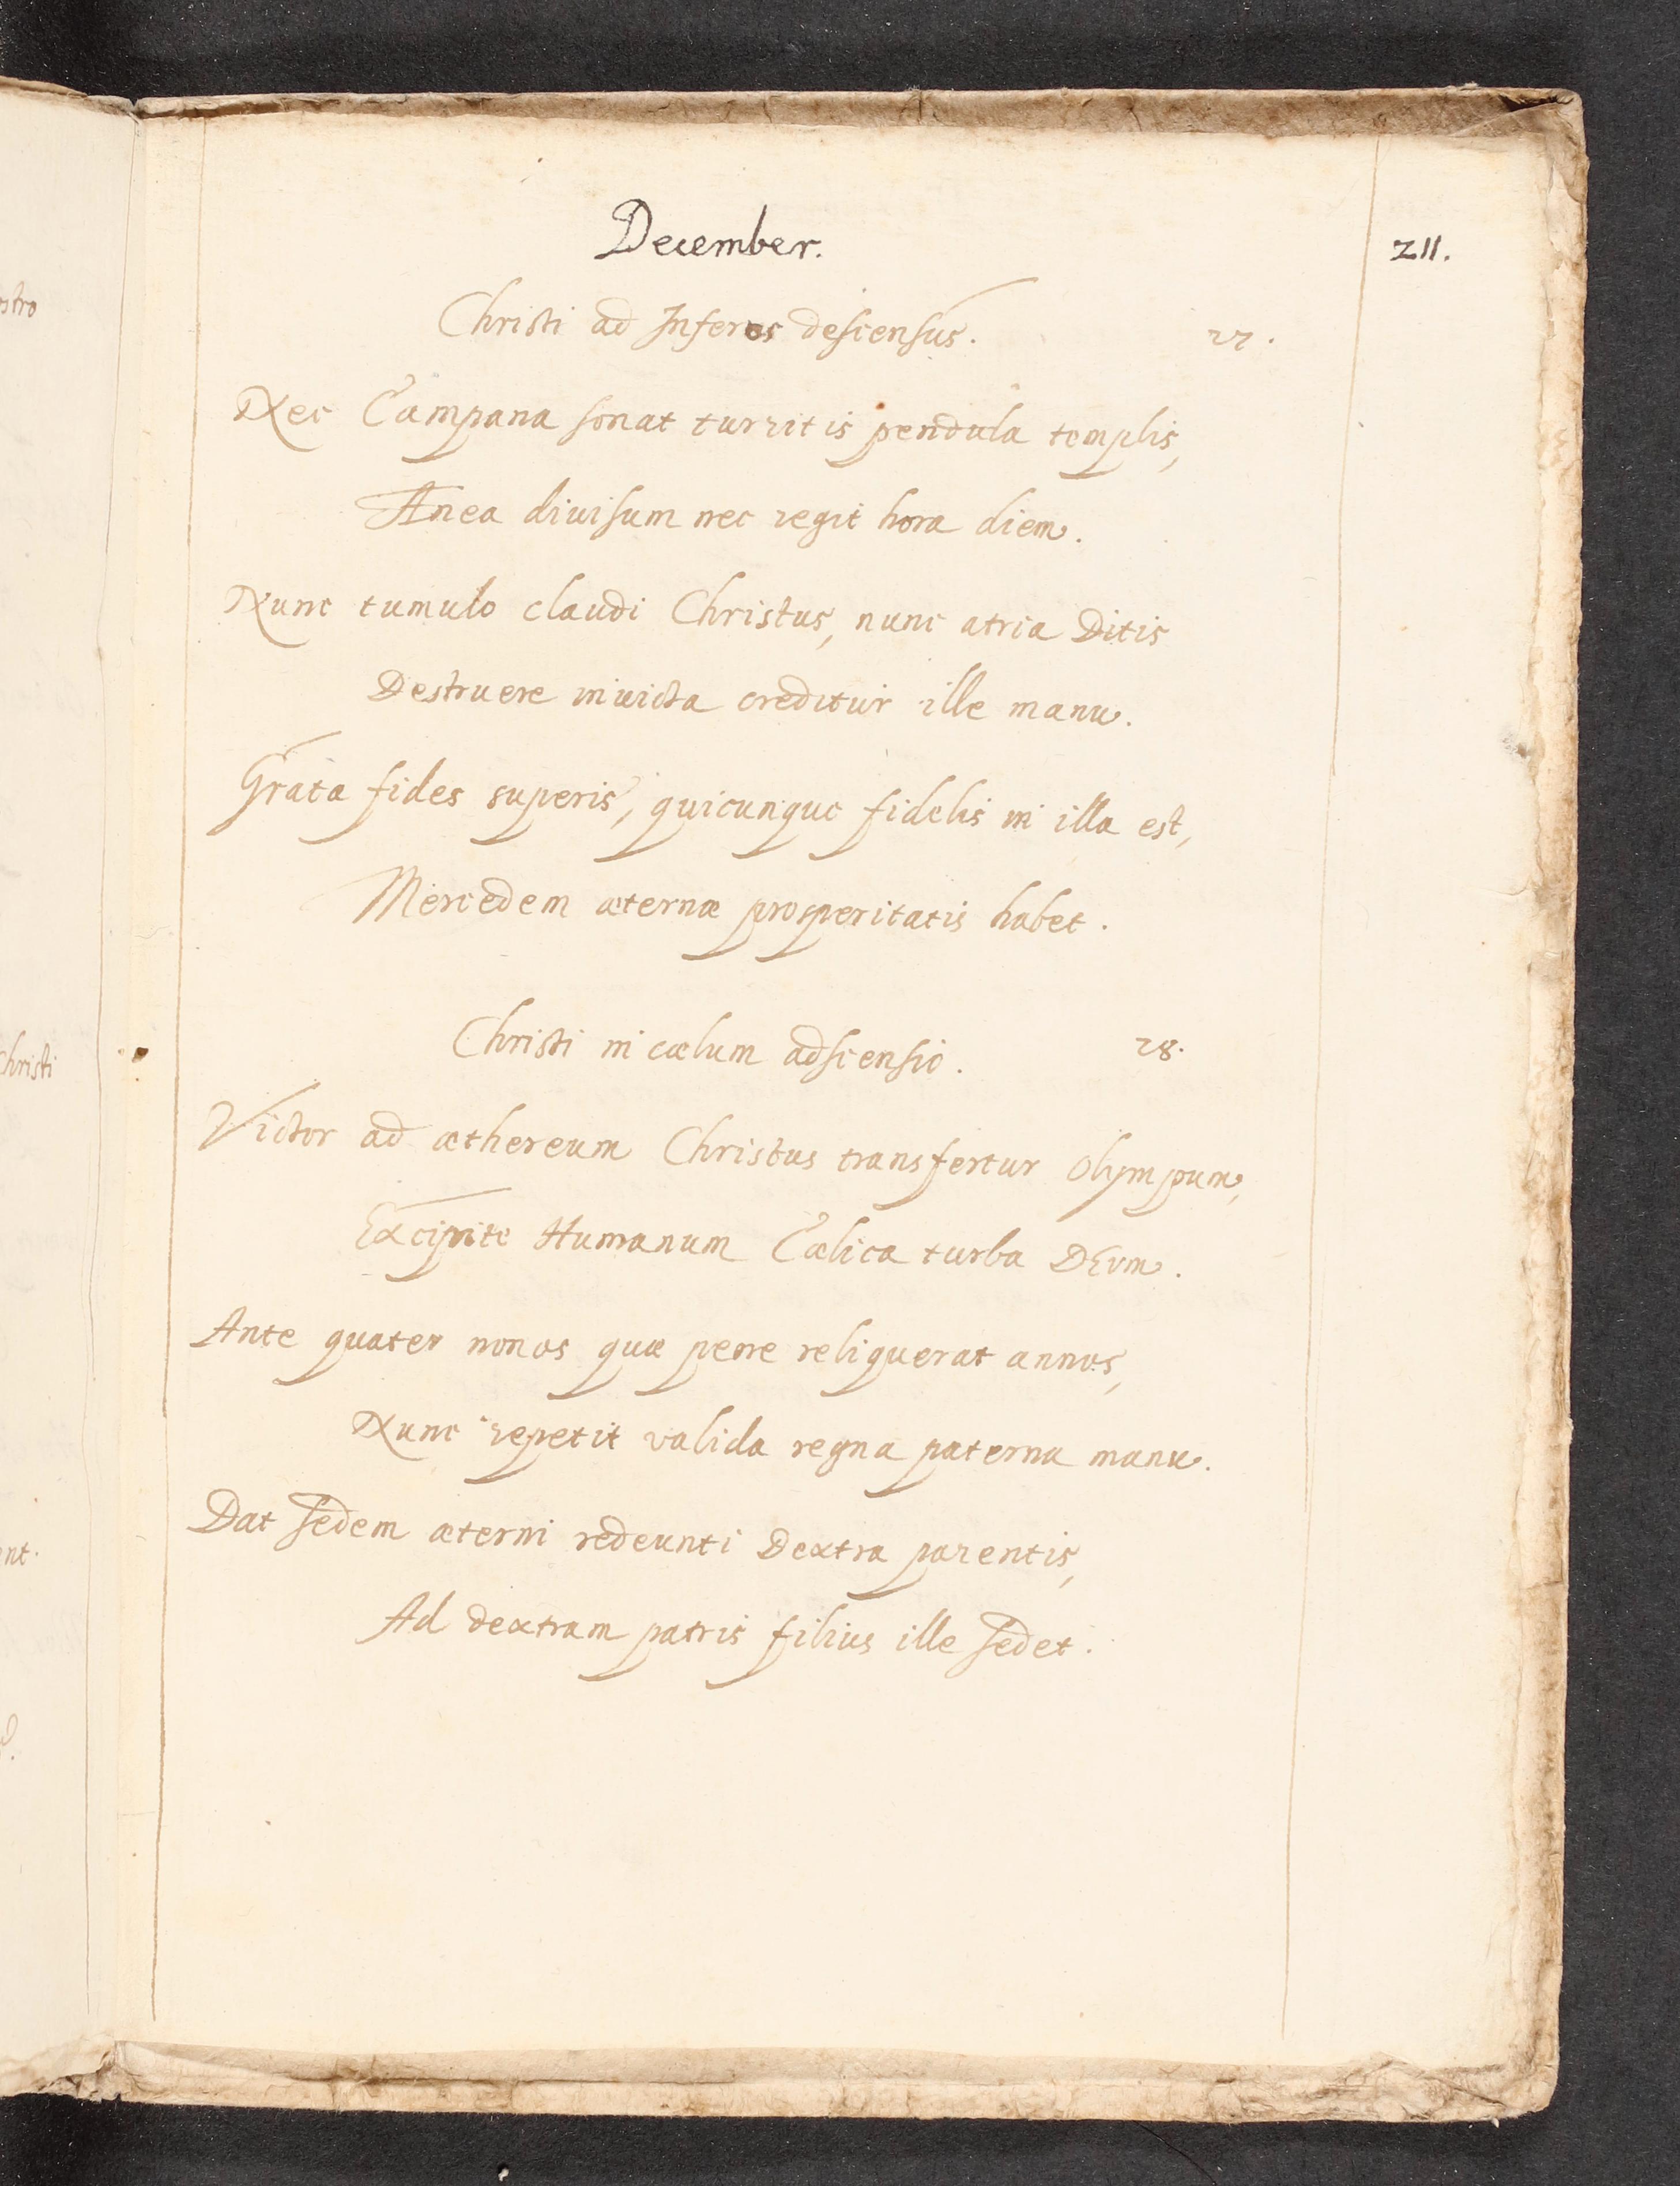 December.
211.
Christi ad Inferos descensus. 27.
Nec Campana sonat turritis pendula templis,
Ænea diuisum nec regit hora diem.
Nunc tumulo claudi Christus, nunc atria Ditis
Destruere inuicta creditur ille manu.
Grata fides superis, quicunque fidelis in illa est,
Mercedem æternæ prosperitatis habet.
Christi in cælum adscensio. 28.
Victor ad æthereum Christus transfertur Olympum,
Excipite Humanum Cælica turba DEVM.
Ante quater nonos quæ pene reliquerat annos,
Nunc repetit valida regna paterna manu.
Dat sedem æterni redeunti Dextra parentis,
Ad dextram patris filius ille sedet.
stro
Christi
ent.